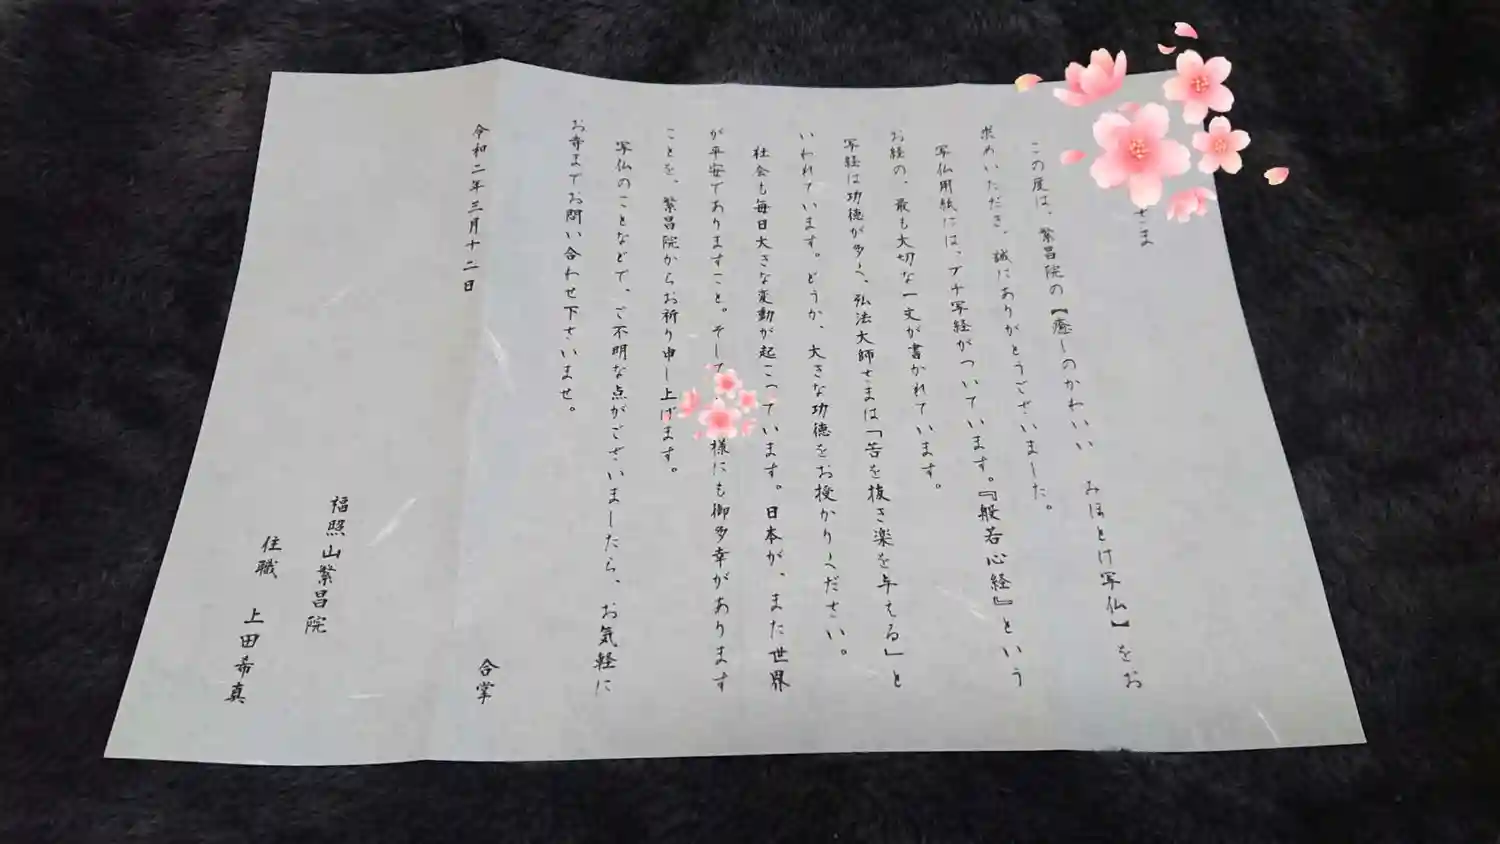 さま
この度は、繁昌院の【癒しのかわいい　みほとけ写仏】をお
求めいただき、誠にありがとうございました。
写仏用紙には、プチ写経がついています。『般若心経』という
お経の、最も大切な一文が書かれています。
写経は功徳が多く、弘法大師さまは「苦を抜き楽を与える」と
いわれています。どうか、大きな功徳をお授かりください。
社会も毎日大きな変動が起こっています。日本が、また世界
が平安でありますこと。そして 様にも御多幸があります
ことを、繁昌院からお祈り申し上げます。
写仏のことなどで、ご不明な点がございましたら、お気軽に
お寺までお問い合わせ下さいませ。
合掌
令和二年三月十二日
福照山繁昌院
住職　上田希真